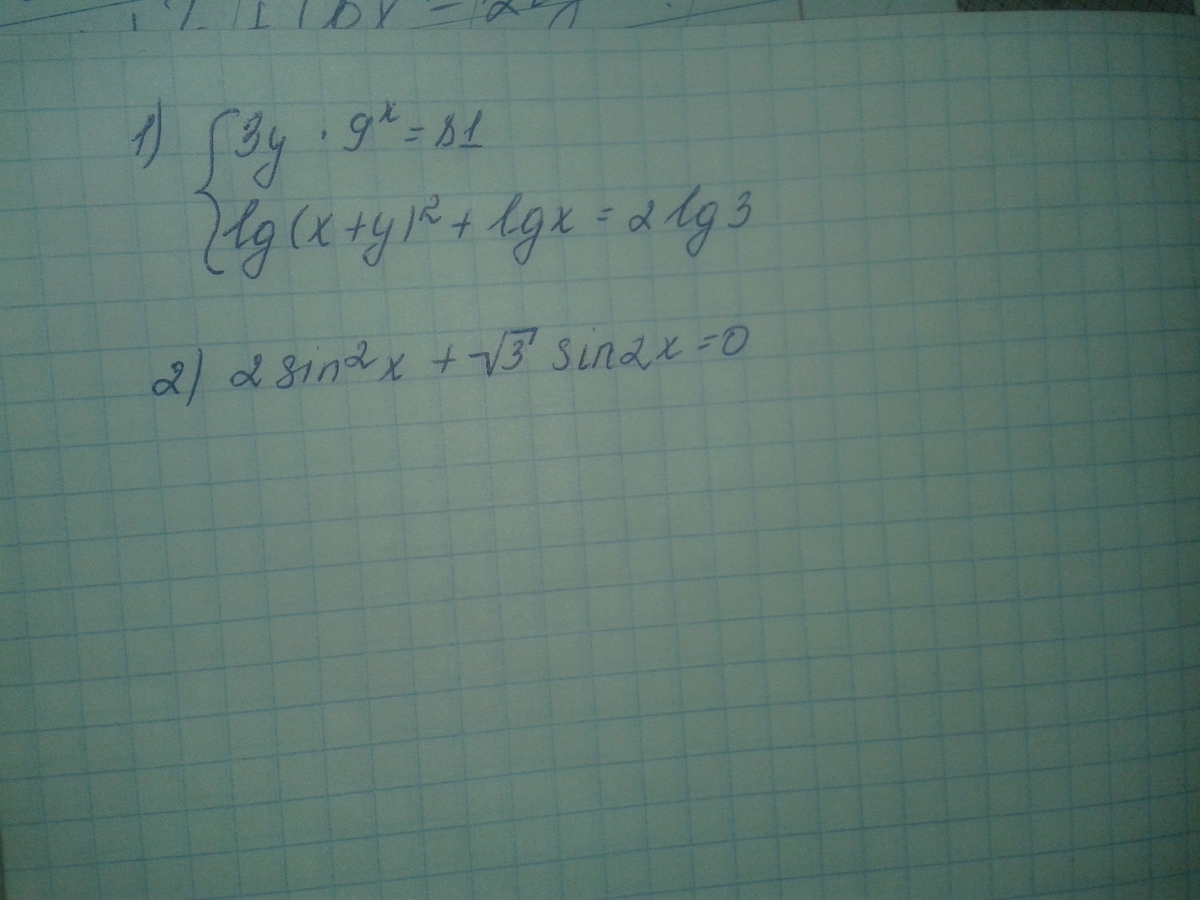 1) { 3y · 9ˣ = 81
lg(x+y)² + lgx = 2lg3
2) 2sin²x + √3 sin2x = 0